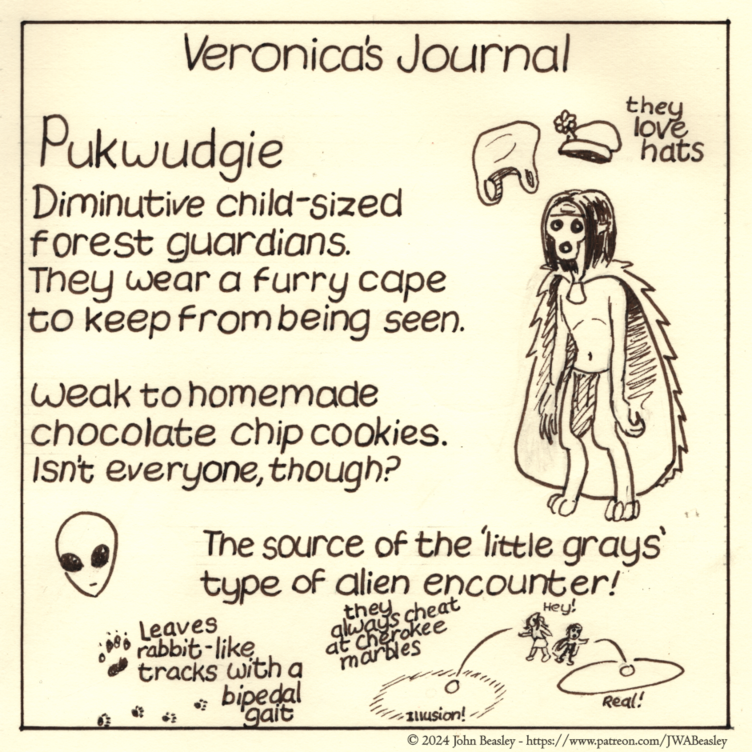 Veronica's Journal
they
love
hats
Pukwudgie
Diminutive child-sized
forest guardians.
They wear a furry cape
to keep from being seen.
Weak to homemade
chocolate chip cookies.
Isn't everyone, though?
The source of the 'little grays'
type of alien encounter!
Leaves
rabbit-like
tracks with a
bipedal
gait
they
always cheat
at cherokee
marbles
Hey!
Illusion!
Real!
© 2024 John Beasley - https://www.patreon.com/JWABeasley